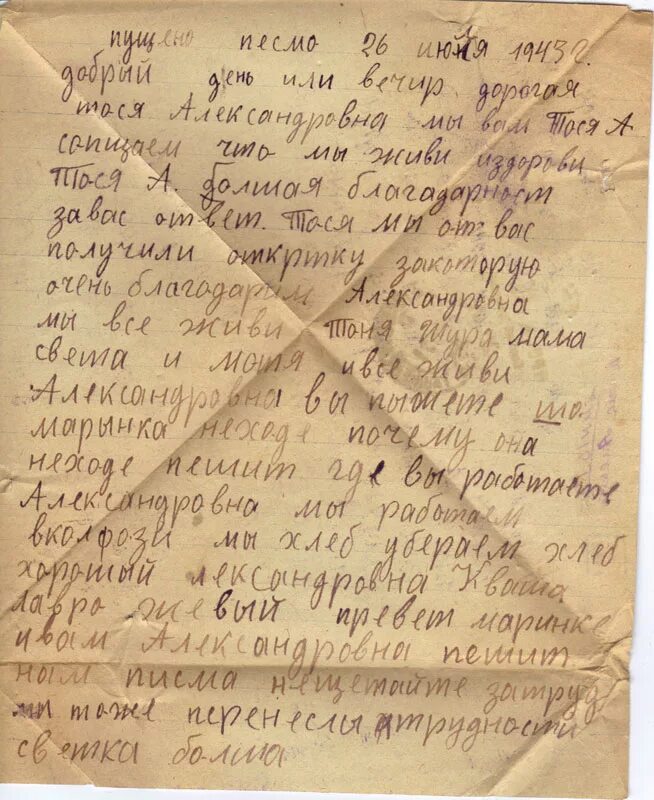 пущено песмо 26 июля 1943 г.
добрый день или вечир дорогая
тося Александровна мы вам Тося А
сопизаем что мы живи издорови
Тося А. болшая благадарност
завас ответ. Тося мы от вас
получили открытку закоторую
очень благодарим Александровна
мы все живи Тоня Шура мама
света и мотя ивсе живи
Александровна вы пышете што
марынка неходе почему она
неходе пешит где вы работаете
Александровна мы работаем
вколфози мы хлеб убераем хлеб
хороший лександровна Кваша
лавро жевый превет маринке
ивам Александровна пешит
нам писма нещетайте затруд
мы тоже перенеслы трудности
светка болша